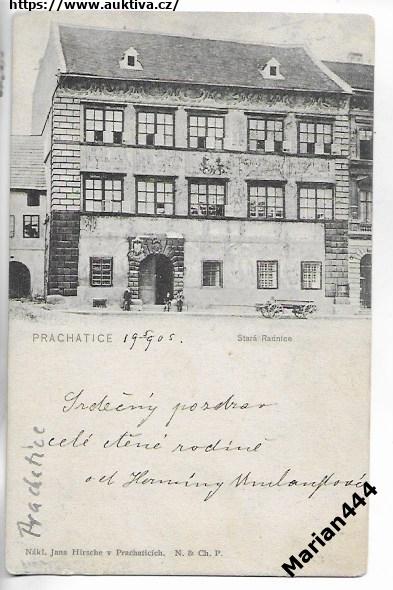 https://www.auktiva.cz/
PRACHATICE 19 5/9 05.
Stará Radnice
Srdečný pozdrav
celé ctěné rodině
od Hermíny
Prachatice
Nákl. Jana Hirsche v Prachaticích. N. & Ch. P.
Marian444